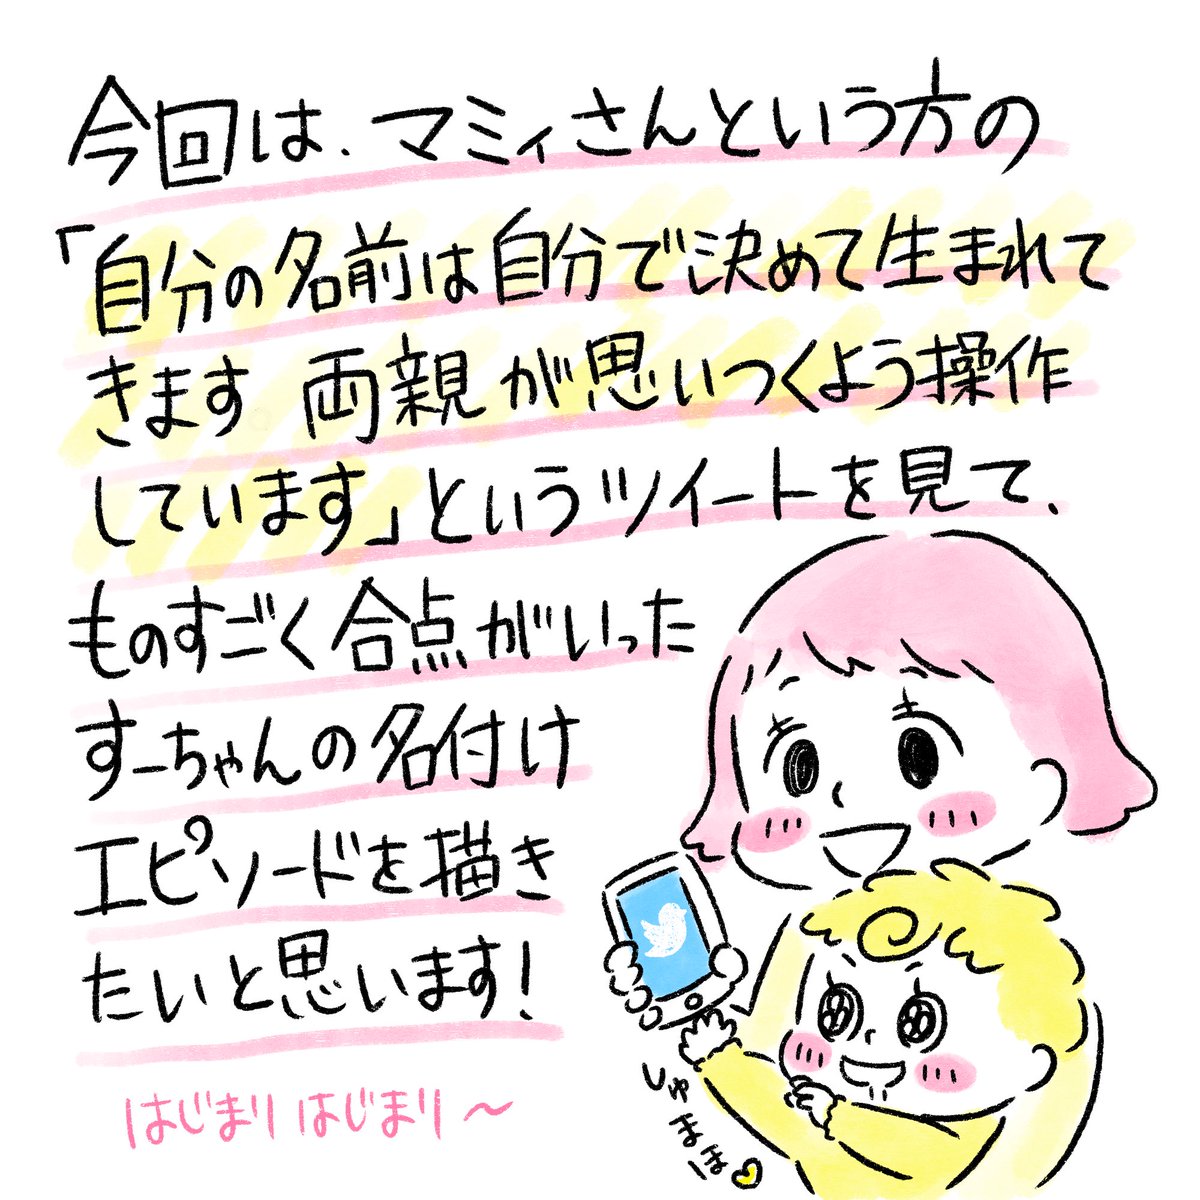 今回は、マミィさんという方の
「自分の名前は自分で決めて生まれて
きます 両親が思いつくよう操作
しています」というツイートを見て、
ものすごく合点がいった
すーちゃんの名付け
エピソードを描き
たいと思います!
はじまりはじまり〜
しゅ
まほ